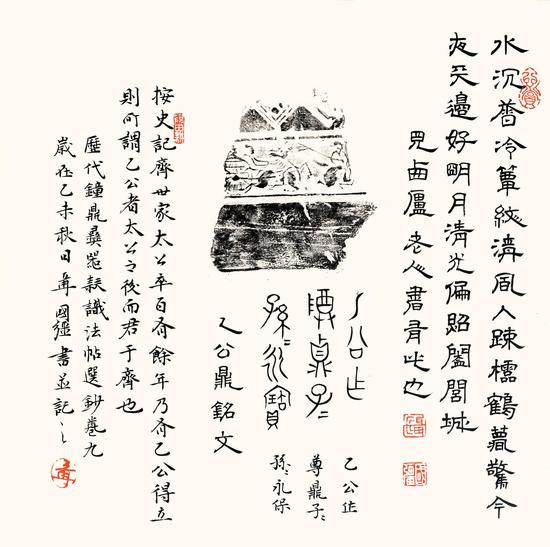 水沉香冷簟紋清風入疎櫺鶴夢驚今
夜天邊好明月清光偏照闔閭城
見西廬老人書有此也
乙公乍
尊鼎子〻
孫〻永寶
乙公作
尊鼎子〻
孫〻永保
乙公鼎銘文
按史記齊世家太公卒百有餘年乃有乙公得立
則所謂乙公者太公之後而君于齊也
歷代鐘鼎彝器款識法帖選鈔卷九
歲在乙未秋日國強書並記之